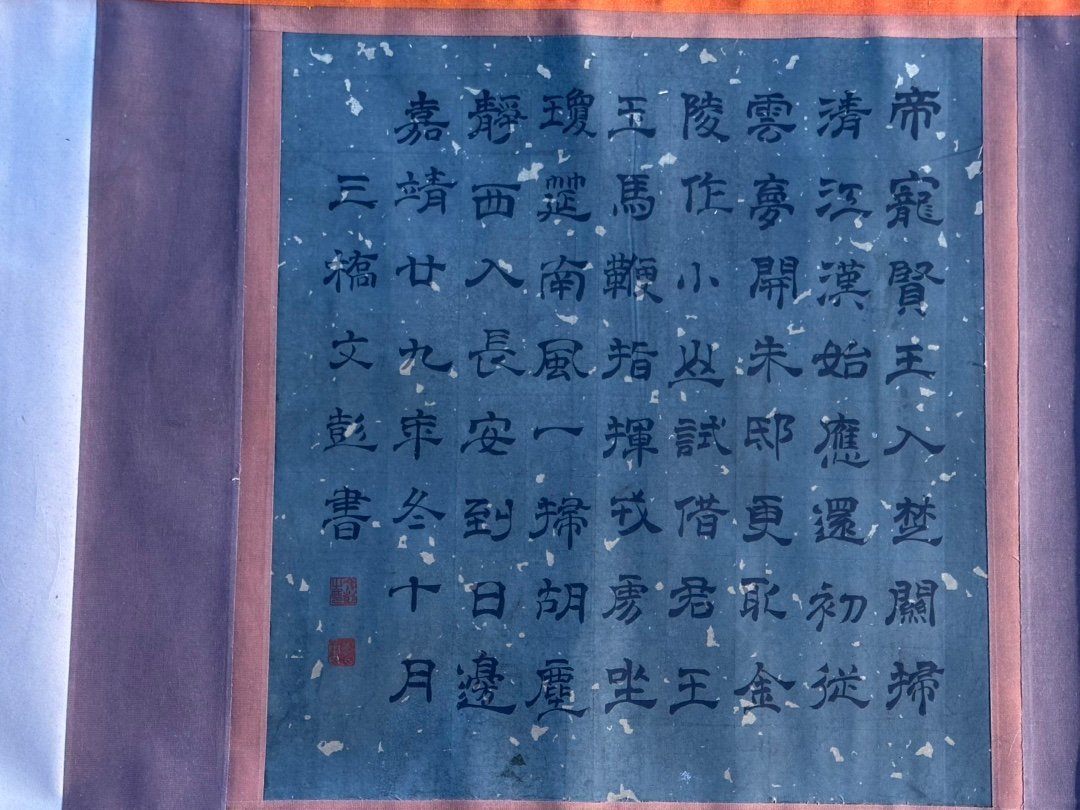 帝寵賢王入楚關掃
清江漢始應還初從
雲夢開朱邸更取金
陵作小山試借君王
玉馬鞭指揮戎虜坐
瓊筵南風一掃胡塵
靜西入長安到日邊
嘉靖廿九年冬十月
三橋文彭書